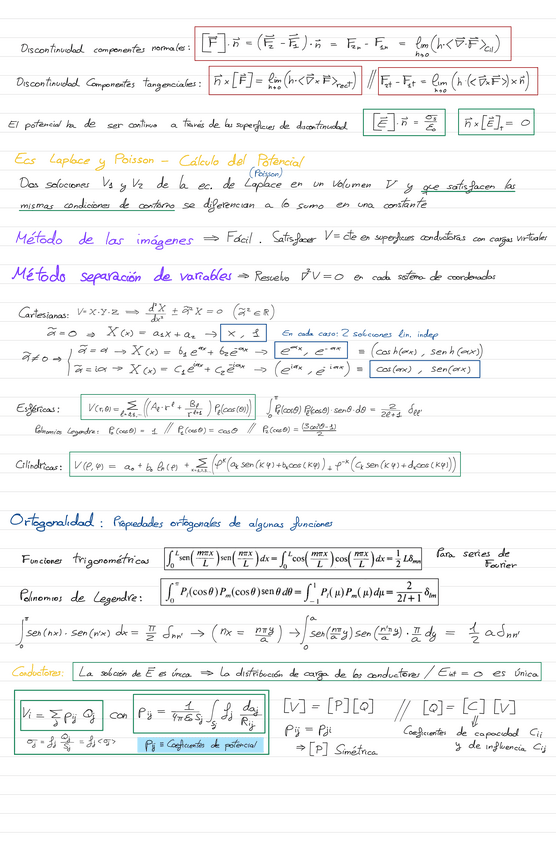 Discontinuidad componentes normales: [F⃗]·n⃗ = (F⃗₂ - F⃗₁)·n⃗ = F₂ₙ - F₁ₙ = lim_{h→0} (h·<∇⃗·F⃗>_{cil})
Discontinuidad Componentes tangenciales: n⃗×[F⃗] = lim_{h→0} (h·<∇⃗×F⃗>_{rect}) // F₂t - F₁t = lim_{h→0} (h·(<∇⃗×F⃗>)×n⃗)
El potencial ha de ser continuo a través de las superficies de discontinuidad [E⃗]·n⃗ = σs/ε₀ n⃗×[E⃗]_T = 0
Ecs Laplace y Poisson – Cálculo del Potencial
(Poisson)
Dos soluciones V₁ y V₂ de la ec. de Laplace en un volumen V y que satisfacen las
mismas condiciones de contorno se diferencian a lo sumo en una constante
Método de las imágenes ⇒ Fácil. Satisfacer V=cte en superficies conductoras con cargas virtuales
Método separación de variables ⇒ Resuelvo ∇²V=0 en cada sistema de coordenadas
Cartesianas: V=X·Y·Z ⇒ d²X/dx² ± α̃²X = 0 (α̃² ∈ ℝ)
α̃=0 ⇒ X(x) = a₁x+a₂ → x, 1 En cada caso: 2 soluciones lin. indep
α̃≠0 ⇒ α̃=α → X(x) = b₁e^{αx} + b₂e^{-αx} → e^{αx}, e^{-αx} ≡ (cosh(αx), senh(αx))
α̃=iα ⇒ X(x) = c₁e^{iαx} + c₂e^{-iαx} → (e^{iαx}, e^{-iαx}) ≡ cos(αx), sen(αx)
Esféricas: V(r,θ) = Σ ((Aℓ·r^ℓ + Bℓ/r^{ℓ+1}) Pℓ(cosθ)) ∫₀^π Pℓ(cosθ) Pℓ'(cosθ)·senθ·dθ = 2/(2ℓ+1) δℓℓ'
Polinomios Legendre: P₀(cosθ) = 1 // P₁(cosθ) = cosθ // P₂(cosθ) = (3cos²θ-1)/2
Cilíndricas: V(ρ,φ) = a₀ + b₀ ln(ρ) + Σ (ρ^k(aₖ sen(kφ)+bₖcos(kφ)) + ρ^{-k}(cₖ sen(kφ)+dₖcos(kφ)))
Ortogonalidad: Propiedades ortogonales de algunas funciones
Funciones trigonométricas ∫₀^L sen(mπx/L) sen(nπx/L) dx = ∫₀^L cos(mπx/L) cos(nπx/L) dx = 1/2 Lδₘₙ Para series de
Fourier
Polinomios de Legendre: ∫₀^π Pₗ(cosθ)Pₘ(cosθ) senθ dθ = ∫₋₁^1 Pₗ(μ)Pₘ(μ)dμ = 2/(2l+1) δₗₘ
∫₀^π sen(nx)·sen(n'x) dx = π/2 δₙₙ' → (nx = nπy/a) → ∫₀^a sen(nπ/a y) sen(n'π/a y)·π/a dy = 1/2 aδₙₙ'
Conductores: La solución de E⃗ es única ⇒ La distribución de carga de los conductores / E_int = 0 es única
Vᵢ = Σⱼ pᵢⱼ Qⱼ con pᵢⱼ = 1/(4πε₀Sⱼ) ∫_{Sⱼ} fⱼ daⱼ/Rᵢⱼ [V] = [P][Q] // [Q] = [C][V]
σⱼ = fⱼ Qⱼ/Sⱼ = fⱼ<σⱼ> pᵢⱼ ≡ Coeficientes de potencial pᵢⱼ = pⱼᵢ Coeficientes de capacidad Cᵢᵢ
⇒ [P] Simétrica y de influencia Cᵢⱼ